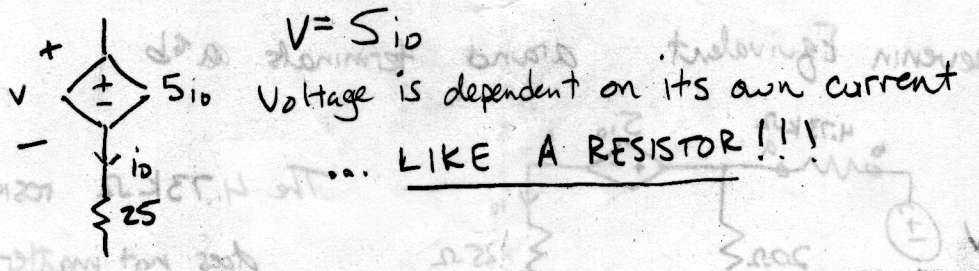 V = 5i₀
+
V
−
+
−
5i₀
Voltage is dependent on its own current
i₀
... LIKE A RESISTOR!!!
25